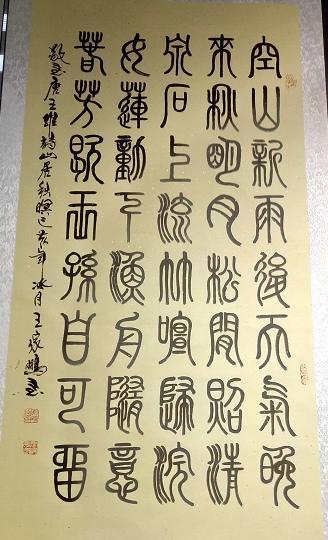 空山新雨後天氣晚
來秋明月松間照清
泉石上流竹喧歸浣
女蓮動下漁舟隨意
春芳歇王孫自可留
敬書唐王維詩山居秋暝己亥年冰月王家鵬書